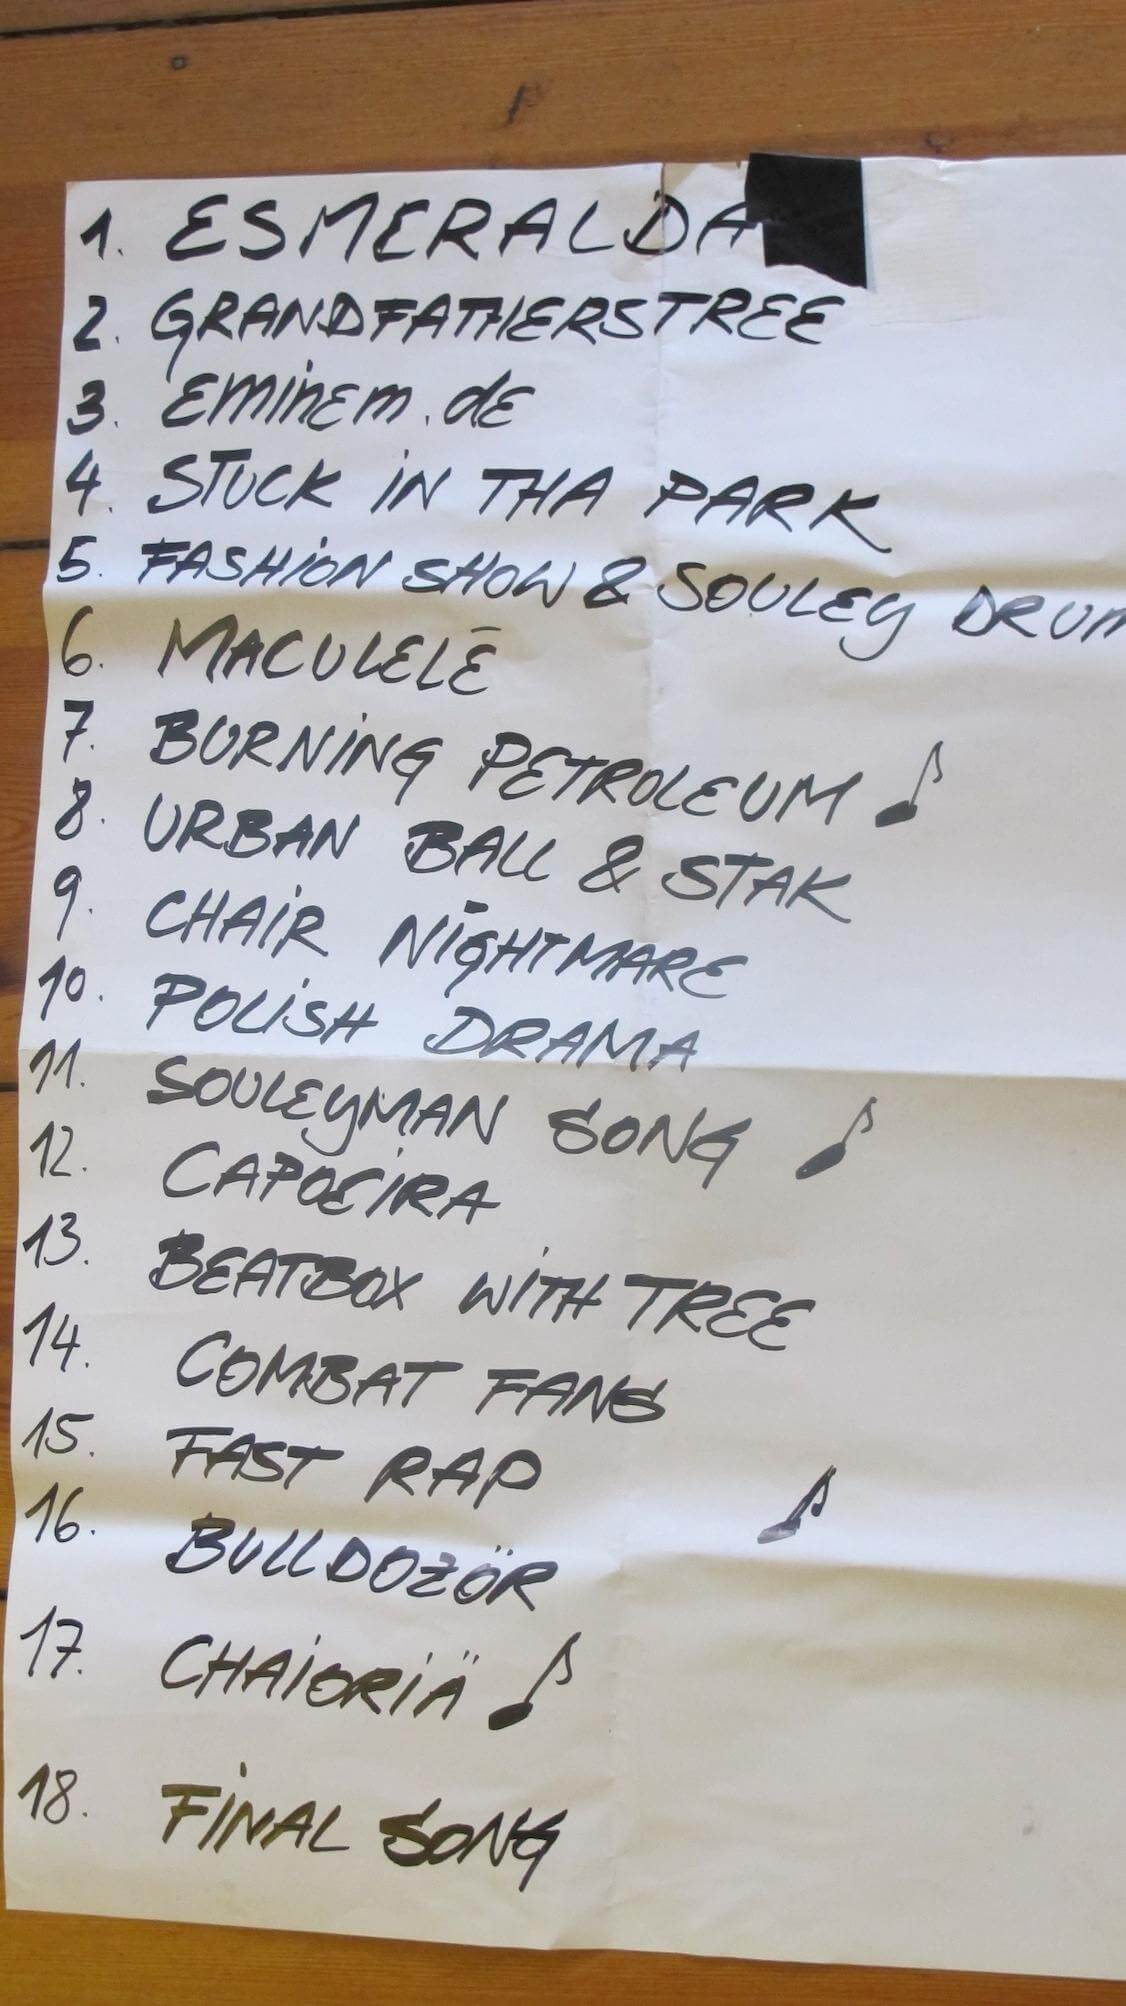 1. ESMERALDA
2. GRANDFATHERSTREE
3. eminem.de
4. STUCK IN THA PARK
5. FASHION SHOW & SOULEY DRUM
6. MACULELĒ
7. BURNING PETROLEUM ♪
8. URBAN BALL & STAK
9. CHAIR NIGHTMARE
10. POLISH DRAMA
11. SOULEYMAN SONG ♪
12. CAPOEIRA
13. BEATBOX WITH TREE
14. COMBAT FANS
15. FAST RAP ♪
16. BULLDOZÖR
17. CHAIORIÄ ♪
18. FINAL SONG